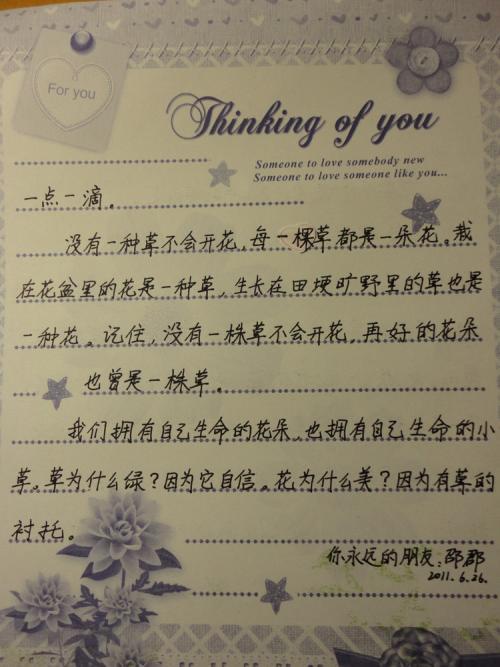 For you
Thinking of you
Someone to love somebody new
Someone to love someone like you...
一点一滴。
没有一种草不会开花,每一棵草都是一朵花。栽
在花盆里的花是一种草,生长在田埂旷野里的草也是
一种花。记住,没有一株草不会开花,再好的花朵
也曾是一株草。
我们拥有自己生命的花朵,也拥有自己生命的小
草。草为什么绿?因为它自信。花为什么美?因为有草的
衬托。
你永远的朋友:邵郡
2011.6.26.